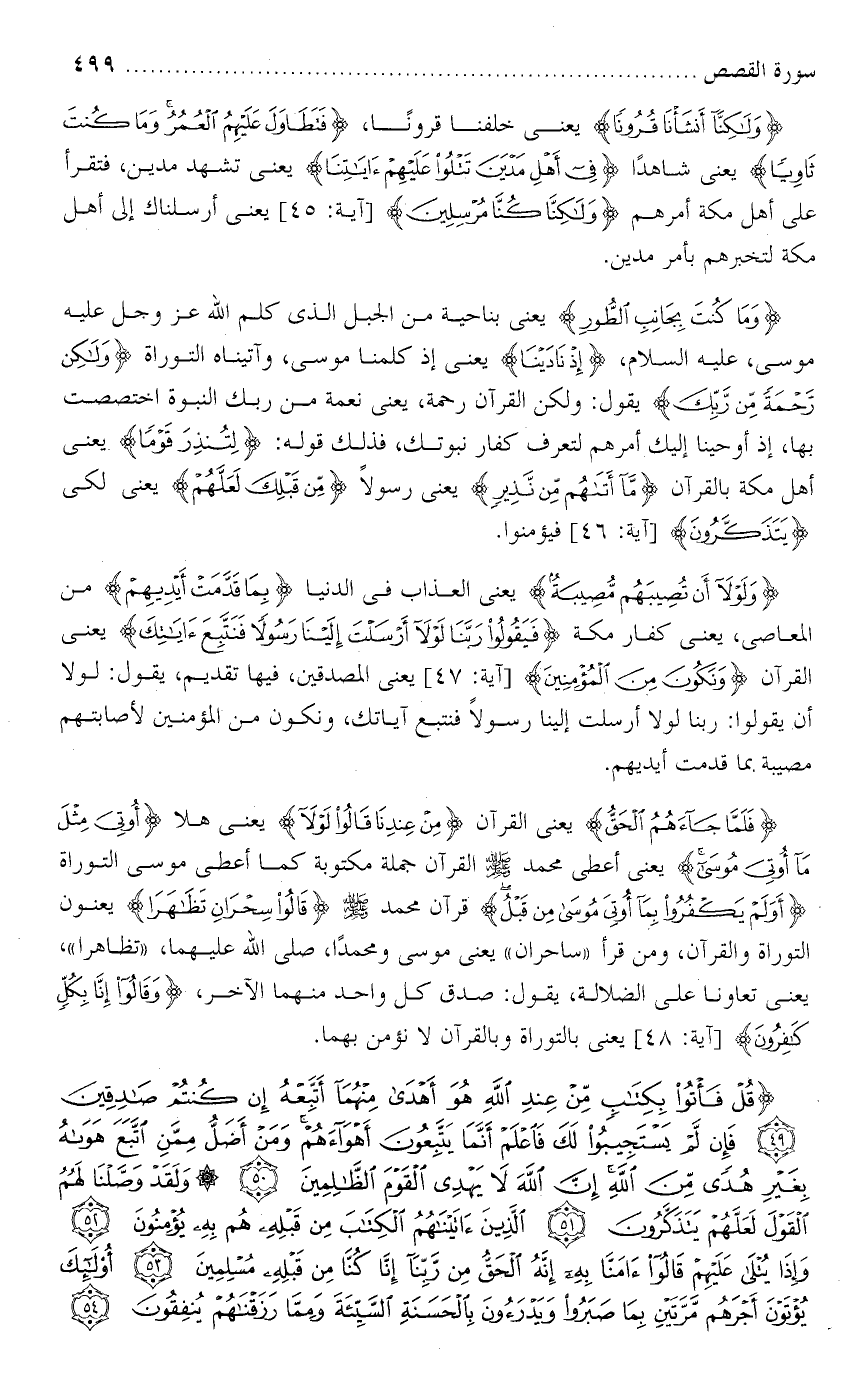 سورة القصص ........................................................................ ٤٩٩
﴿وَلَٰكِنَّآ أَنشَأْنَا قُرُونًا﴾ يعنـى خلفنـا قرونًـا، ﴿فَتَطَاوَلَ عَلَيْهِمُ ٱلْعُمُرُ ۚ وَمَا كُنتَ
ثَاوِيًا﴾ يعنى شاهدًا ﴿فِىٓ أَهْلِ مَدْيَنَ تَتْلُوا۟ عَلَيْهِمْ ءَايَٰتِنَا﴾ يعنى تشهد مدين، فتقرأ
على أهل مكة أمرهم ﴿وَلَٰكِنَّا كُنَّا مُرْسِلِينَ﴾ [آية: ٤٥] يعنى أرسلناك إلى أهل
مكة لتخبرهم بأمر مدين.
﴿وَمَا كُنتَ بِجَانِبِ ٱلطُّورِ﴾ يعنى بناحية من الجبل الذى كلم الله عز وجل عليه
موسى، عليه السلام، ﴿إِذْ نَادَيْنَا﴾ يعنى إذ كلمنا موسى، وآتيناه التوراة ﴿وَلَٰكِن
رَّحْمَةً مِّن رَّبِّكَ﴾ يقول: ولكن القرآن رحمة، يعنى نعمة من ربك النبوة اختصصت
بها، إذ أوحينا إليك أمرهم لتعرف كفار نبوتك، فذلك قوله: ﴿لِتُنذِرَ قَوْمًا﴾ يعنى
أهل مكة بالقرآن ﴿مَّآ أَتَىٰهُم مِّن نَّذِيرٍ﴾ يعنى رسولاً ﴿مِّن قَبْلِكَ لَعَلَّهُمْ﴾ يعنى لكى
﴿يَتَذَكَّرُونَ﴾ [آية: ٤٦] فيؤمنوا.
﴿وَلَوْلَآ أَن تُصِيبَهُم مُّصِيبَةٌۢ﴾ يعنى العذاب فى الدنيا ﴿بِمَا قَدَّمَتْ أَيْدِيهِمْ﴾ من
المعاصى، يعنى كفار مكة ﴿فَيَقُولُوا۟ رَبَّنَا لَوْلَآ أَرْسَلْتَ إِلَيْنَا رَسُولًا فَنَتَّبِعَ ءَايَٰتِكَ﴾ يعنى
القرآن ﴿وَنَكُونَ مِنَ ٱلْمُؤْمِنِينَ﴾ [آية: ٤٧] يعنى المصدقين، فيها تقديم، يقول: لولا
أن يقولوا: ربنا لولا أرسلت إلينا رسولاً فنتبع آياتك، ونكون من المؤمنين لأصابتهم
مصيبة بما قدمت أيديهم.
﴿فَلَمَّا جَآءَهُمُ ٱلْحَقُّ﴾ يعنى القرآن ﴿مِنْ عِندِنَا قَالُوا۟ لَوْلَآ﴾ يعنى هلا ﴿أُوتِىَ مِثْلَ
مَآ أُوتِىَ مُوسَىٰٓ ۚ﴾ يعنى أعطى محمد ﷺ القرآن جملة مكتوبة كما أعطى موسى التوراة
﴿أَوَلَمْ يَكْفُرُوا۟ بِمَآ أُوتِىَ مُوسَىٰ مِن قَبْلُ ۖ﴾ قرآن محمد ﷺ ﴿قَالُوا۟ سِحْرَانِ تَظَٰهَرَا﴾ يعنون
التوراة والقرآن، ومن قرأ «ساحران» يعنى موسى ومحمدًا، صلى الله عليهما، «تظاهرا»،
يعنى تعاونا على الضلالة، يقول: صدق كل واحد منهما الآخر، ﴿وَقَالُوٓا۟ إِنَّا بِكُلٍّ
كَٰفِرُونَ﴾ [آية: ٤٨] يعنى بالتوراة وبالقرآن لا نؤمن بهما.
﴿قُلْ فَأْتُوا۟ بِكِتَٰبٍ مِّنْ عِندِ ٱللَّهِ هُوَ أَهْدَىٰ مِنْهُمَآ أَتَّبِعْهُ إِن كُنتُمْ صَٰدِقِينَ
﴿٤٩﴾ فَإِن لَّمْ يَسْتَجِيبُوا۟ لَكَ فَٱعْلَمْ أَنَّمَا يَتَّبِعُونَ أَهْوَآءَهُمْ ۚ وَمَنْ أَضَلُّ مِمَّنِ ٱتَّبَعَ هَوَىٰهُ
بِغَيْرِ هُدًى مِّنَ ٱللَّهِ ۚ إِنَّ ٱللَّهَ لَا يَهْدِى ٱلْقَوْمَ ٱلظَّٰلِمِينَ ﴿٥٠﴾ ۞ وَلَقَدْ وَصَّلْنَا لَهُمُ
ٱلْقَوْلَ لَعَلَّهُمْ يَتَذَكَّرُونَ ﴿٥١﴾ ٱلَّذِينَ ءَاتَيْنَٰهُمُ ٱلْكِتَٰبَ مِن قَبْلِهِۦ هُم بِهِۦ يُؤْمِنُونَ ﴿٥٢﴾
وَإِذَا يُتْلَىٰ عَلَيْهِمْ قَالُوٓا۟ ءَامَنَّا بِهِۦٓ إِنَّهُ ٱلْحَقُّ مِن رَّبِّنَآ إِنَّا كُنَّا مِن قَبْلِهِۦ مُسْلِمِينَ ﴿٥٣﴾ أُو۟لَٰٓئِكَ
يُؤْتَوْنَ أَجْرَهُم مَّرَّتَيْنِ بِمَا صَبَرُوا۟ وَيَدْرَءُونَ بِٱلْحَسَنَةِ ٱلسَّيِّئَةَ وَمِمَّا رَزَقْنَٰهُمْ يُنفِقُونَ ﴿٥٤﴾